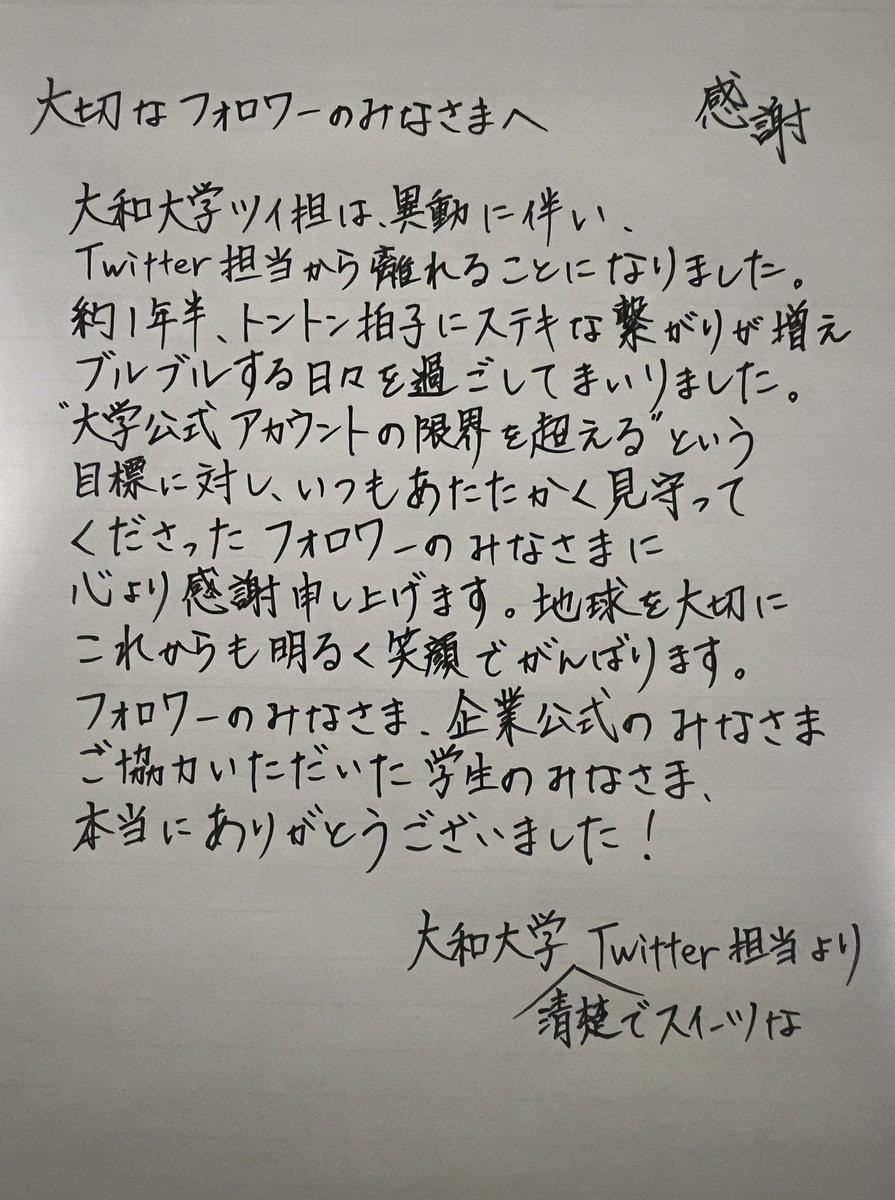 大切なフォロワーのみなさまへ 感謝
大和大学ツイ担は、異動に伴い、
Twitter担当から離れることになりました。
約1年半、トントン拍子にステキな繋がりが増え
ブルブルする日々を過ごしてまいりました。
"大学公式アカウントの限界を超える"という
目標に対し、いつもあたたかく見守って
くださったフォロワーのみなさまに
心より感謝申し上げます。地球を大切に
これからも明るく笑顔でがんばります。
フォロワーのみなさま、企業公式のみなさま
ご協力いただいた学生のみなさま、
本当にありがとうございました!
大和大学 Twitter担当より
清楚でスイーツな